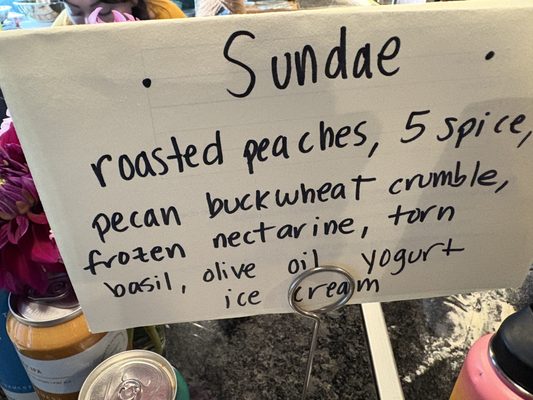 • Sundae •
roasted peaches, 5 spice,
pecan buckwheat crumble,
frozen nectarine, torn
basil, olive oil yogurt
ice cream
IPA